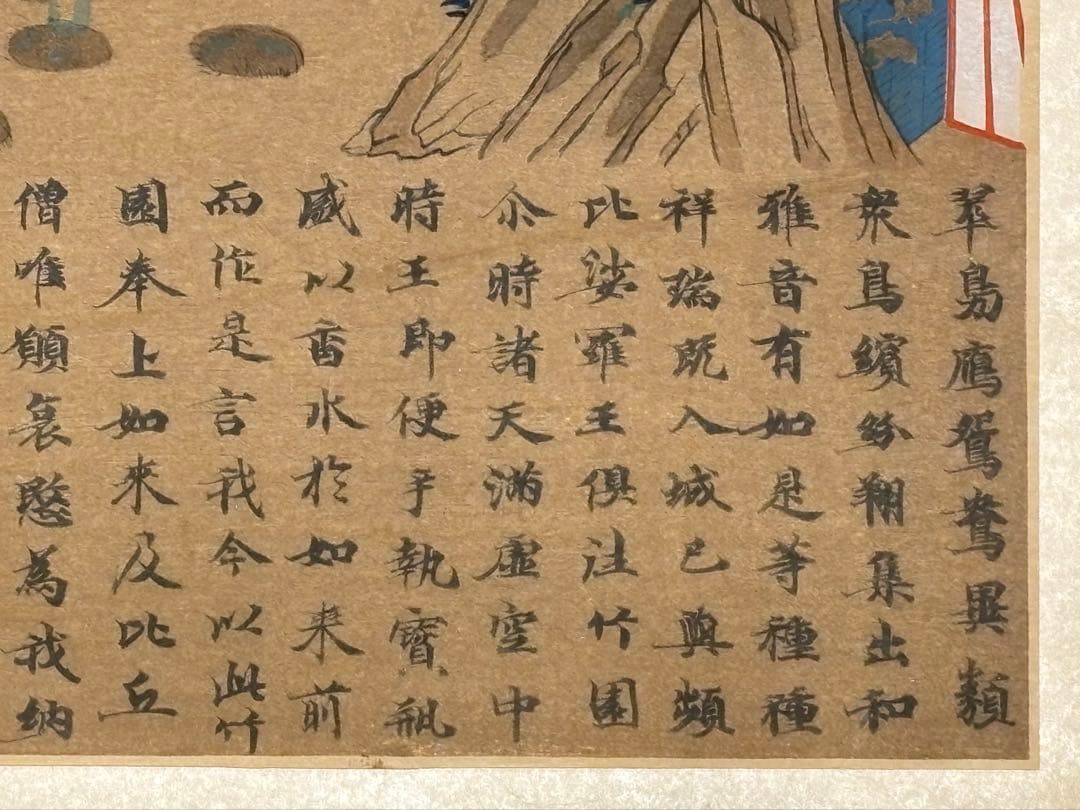 翠鳥鴈鴛鴦異類
衆鳥繽紛翔集出和
雅音有如是等種種
祥瑞既入城已與頻
比娑羅王俱注竹園
尒時諸天滿虛空中
時王即便手執寶瓶
盛以香水於如来前
而作是言我今以此竹
園奉上如來及比丘
僧唯願哀愍為我納